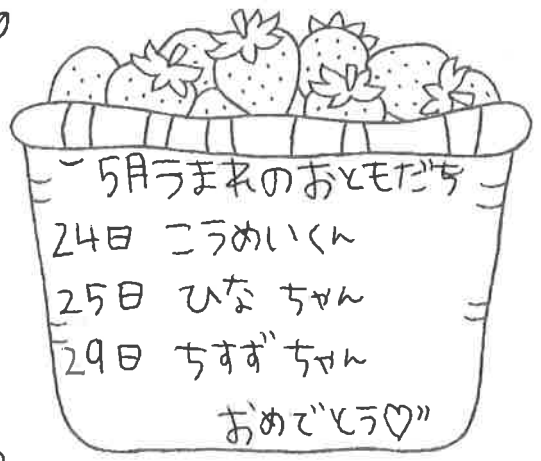 5月うまれのおともだち
24日 こうめいくん
25日 ひなちゃん
29日 ちすずちゃん
おめでとう♡"